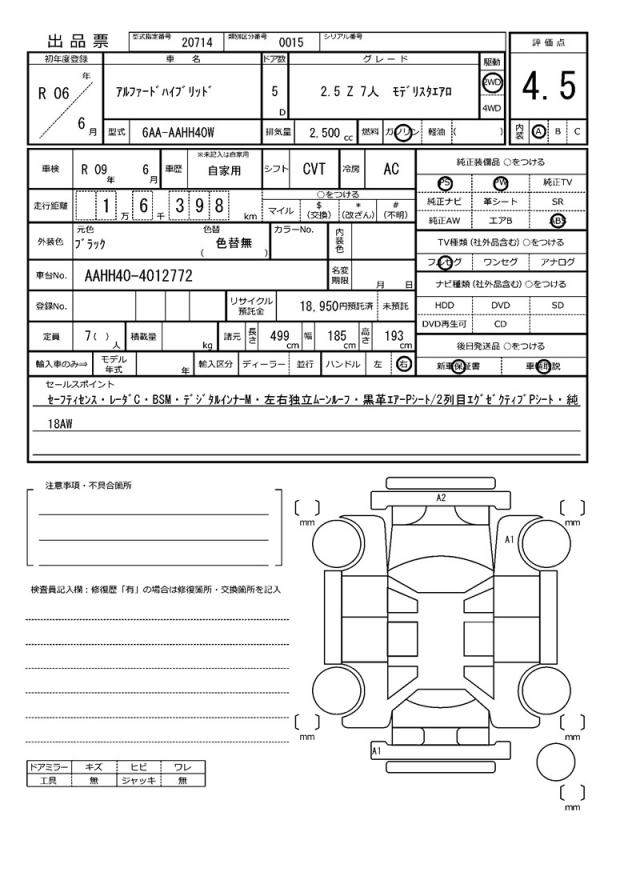 出品票 型式指定番号 20714 類別区分番号 0015 シリアル番号
評価点
初年度登録 車名 ドア数 グレード 駆動
R 06 年 6 月 アルファードハイブリッド 5 D 2.5 Z 7人 モデリスタエアロ 2WD 4WD
4.5
型式 6AA-AAHH40W 排気量 2,500 cc 燃料 ガソリン 軽油 ( ) 内装 A B C
車検 R 09 年 6 月 車歴 ※未記入は自家用 自家用 シフト CVT 冷房 AC
純正装備品 ○をつける
PS PW 純正TV
純正ナビ 革シート SR
純正AW エアB ABS
走行距離 1 万 6 千 3 9 8 km ○をつける マイル $ (交換) * (改ざん) # (不明)
外装色 元色 ブラック 色替 ( 色替無 ) カラーNo. 内装色
TV種類 (社外品含む) ○をつける
フルセグ ワンセグ アナログ
車台No. AAHH40-4012772 名変期限 月 日
ナビ種類 (社外品含む) ○をつける
HDD DVD SD
DVD再生可 CD
登録No. リサイクル預託金 18,950円預託済 未預託
定員 7( ) 人 積載量 kg 諸元 長さ 499 cm 幅 185 cm 高さ 193 cm
後日発送品 ○をつける
新車保証書 車輌取説
輸入車のみ⇒ モデル年式 年 輸入区分 ディーラー 並行 ハンドル 左 右
セールスポイント
セーフティセンス・レーダC・BSM・デジタルインナーM・左右独立ムーンルーフ・黒革エアーPシート/2列目エグゼクティブPシート・純
18AW
注意事項・不具合箇所
検査員記入欄：修復歴「有」の場合は修復箇所・交換箇所を記入
A2
mm mm
A1
mm mm
A1
mm
ドアミラー キズ ヒビ ワレ
工具 無 ジャッキ 無